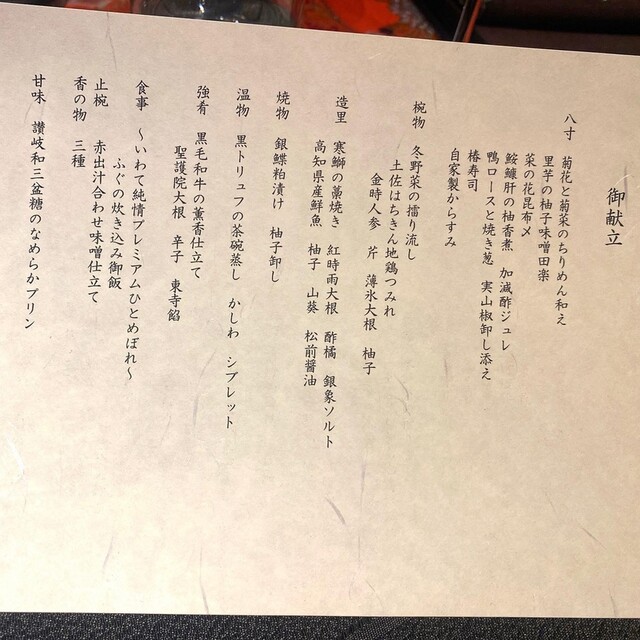 御献立
八寸　菊花と菊菜のちりめん和え
里芋の柚子味噌田楽
菜の花昆布〆
鮟鱇肝の柚香煮　加減酢ジュレ
鴨ロースと焼き葱　実山椒卸し添え
椿寿司
自家製からすみ
椀物　冬野菜の擂り流し
土佐はちきん地鶏つみれ
金時人参　芹　薄氷大根　柚子
造里　寒鰤の藁焼き　紅時雨大根　酢橘　銀象ソルト
高知県産鮮魚　柚子　山葵　松前醤油
焼物　銀鰈粕漬け　柚子卸し
温物　黒トリュフの茶碗蒸し　かしわ　シブレット
強肴　黒毛和牛の薫香仕立て
聖護院大根　辛子　東寺餡
食事　～いわて純情プレミアムひとめぼれ～
ふぐの炊き込み御飯
止椀　赤出汁合わせ味噌仕立て
香の物　三種
甘味　讃岐和三盆糖のなめらかプリン